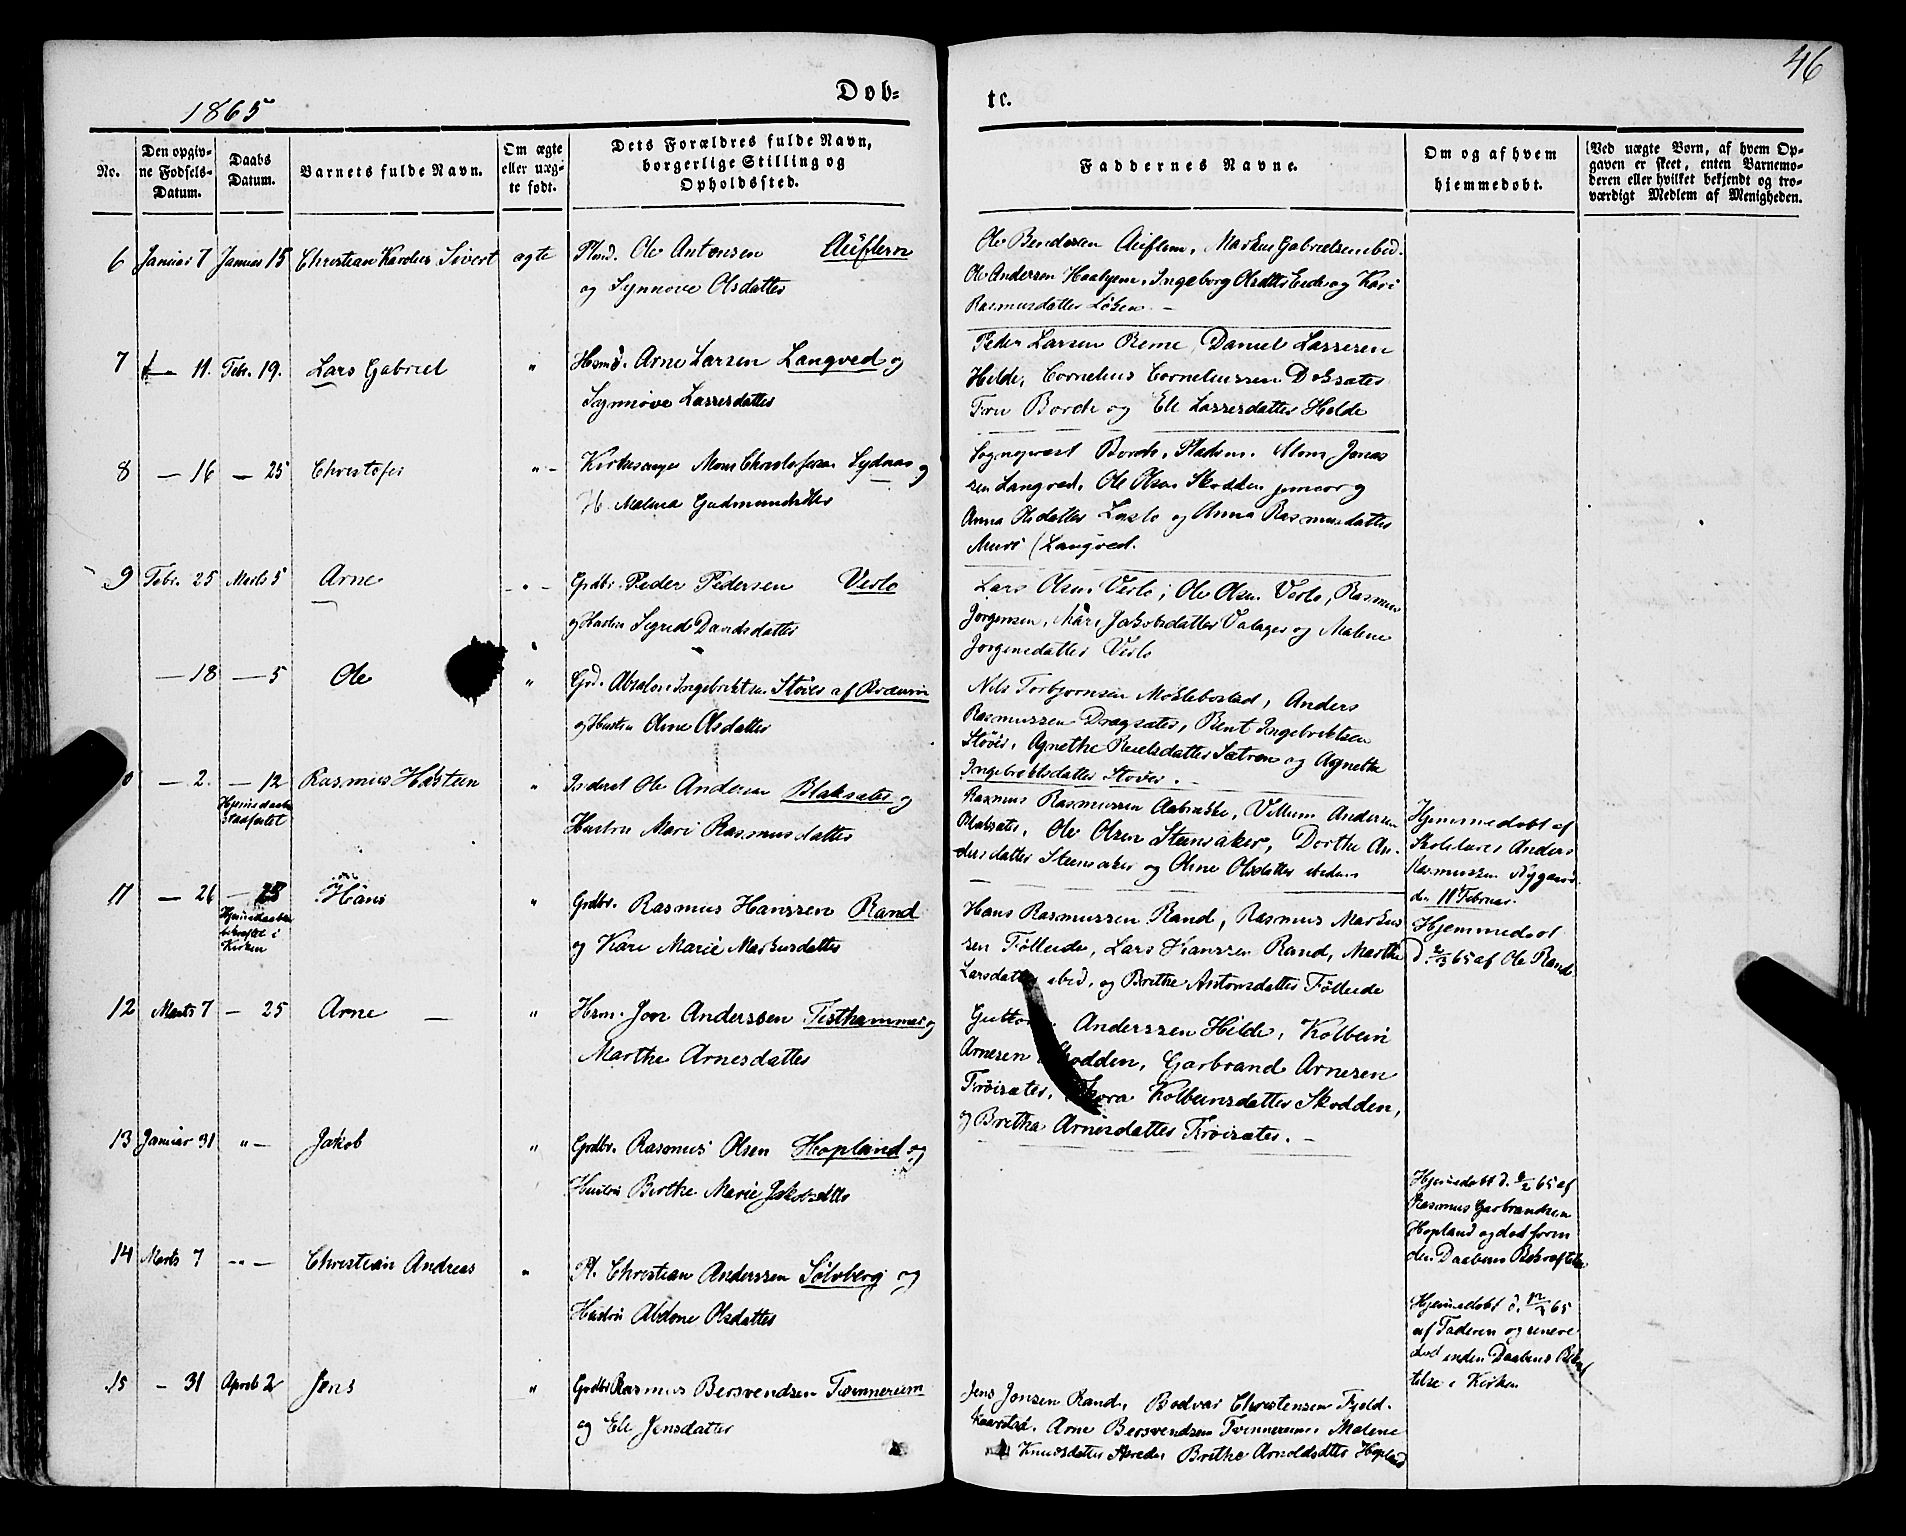 46
1865
Døb=
te.
No.
Den opgiv-
ne Fødsels-
Datum.
Daabs
Datum.
Barnets fulde Navn.
Om ægte
eller uæg-
te født.
Dets Forældres fulde Navn,
borgerlige Stilling og
Opholdssted.
Faddernes Navne.
Om og af hvem
hjemmedøbt.
Ved uægte Børn, af hvem Op-
gaven er skeet, enten Varnemo-
deren eller hvilket bekjendt og tro-
værdigt Medlem af Menigheden.
6 Januar 7 Januar 15 Christian Karolus Sivert ægte Plmd. Ole Antonsen
og Synnøve Olsdatter
Ole Bendossen
Ole Andersen
Rasmusdatter
7 11. Febr. 19. Lars Gabriel " Hsmd. Arne Larsen Langved og
Synnøve Lassesdatter
Peder Larsen Reme, Daniel Lassesen
Hilde, Cornelius Corneliussen
Fru Borch og Eli Lassesdatter Hilde
8 — 16 — 25 Christofer " Kirkesanger Mons Christofersen Sydnes og
H. Malena Gudmundsdatter
Sogneprest Borch, Pladsm. Mons Jonas
sen Langved, Ole Olsen Skodden junior og
Anna Olsdatter og Anna Rasmusdatter
Muri (Langved.
9 Febr. 25 Marts 5 Arne " Grdbr. Peder Pedersen Veslo
og Hustru Sigrid Davidsdatter
Lars Olsen Veslo, Ole Olsen Veslo, Rasmus
Jørgensen, Mari Jakobsdatter og Malene
Jørgensdatter Veslo
— 18 — 5 Ole " Grd. Absalon Ingebriktsen Støves af
og Hustru Oline Olsdatter
Nils Torbjørnsen Myklebostad, Anders
Rasmussen Dragsæter, Bent Ingebriktsen
Støver, Agnethe Sætren og Agnethe
Ingebriktsdatter Støver.
— 2. — 12 Rasmus Hartvan " Ole Andersen Blaksæter og
Hustru Mari Rasmusdatter
Rasmus Rasmussen Aabrekke, Villum Andersen
Blaksæter, Ole Olsen Steensaker, Dorthe An-
dersdatter Steensaker og Oline Olsdatter ibidem
Hjemmedøbt af
Skolelærer Anders
Rasmussen
den 11te Februar.
11 — 26 — Hans " Grdbr. Rasmus Hanssen Rand
og Kari Marie Markusdatter
Hans Rasmussen Rand, Rasmus Markus
sen Følleide, Lars Hanssen Rand, Marthe
Larsdatter ibid, og Brithe Antonsdatter Følleide
Hjemmedøbt
d. 2/3 65 af Ole Rand
Kirken
12 Marts 7 — 25 Arne " Hsm. Jon Anderssen Tisthammer og
Marthe Arnesdatter
Guttorm Anderssen Hilde, Kolbein
Arnesen Skodden, Garbrand Arnesen
Trøisæter, Kolbeinsdatter Skodden,
og Britha Arnesdatter Trøisæter. —
13 Januar 31 " — Jakob " Grdbr. Rasmus Olsen Hopland og
Hustru Birthe Marie Jakobsdatter
Hjemmedøbt d. 65 af
Rasmus Garbrandsen
Hopland og død foren
den Daabens Bekræftelse
14 Marts 7 " — Christian Andreas " Pl. Christian Anderssen Sølvberg og
Hustru Abelone Olsdatter
Hjemmedøbt d. 65
af Faderen og
død inden Daabens Bekræf
telse i Kirken
15 — 31 April 2 Jens " Grdbr Rasmus Bersvendsen Tvinnereim
og Eli Jensdatter
Jens Jonsen Rand, Bodvar Christensen Fjeld-
Kaarstad, Arne Bersvendsen Tvinnereim, Malene
Knudsdatter Skrede, Brithe Arnoldsdtter Hopland